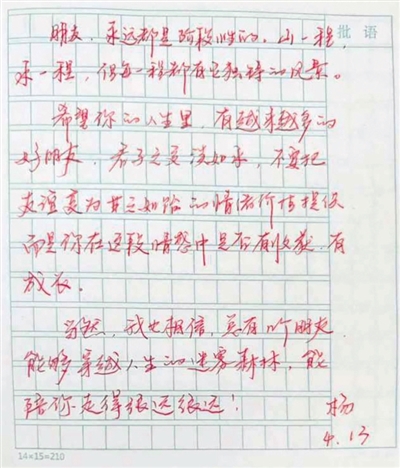 批语
朋友,永远都是阶段性的。山一程,
水一程,但每一程都有它独特的风景。
希望你的人生里,有越来越多的
好朋友,君子之交淡如水,不要把
友谊变为甘之如饴的情绪价值提供
而是你在这段情感中是否有收获,有
成长。
当然,我也相信,总有个朋友
能够穿越人生的迷雾森林,能
陪你走得很远很远!
杨
4.13
14×15=210